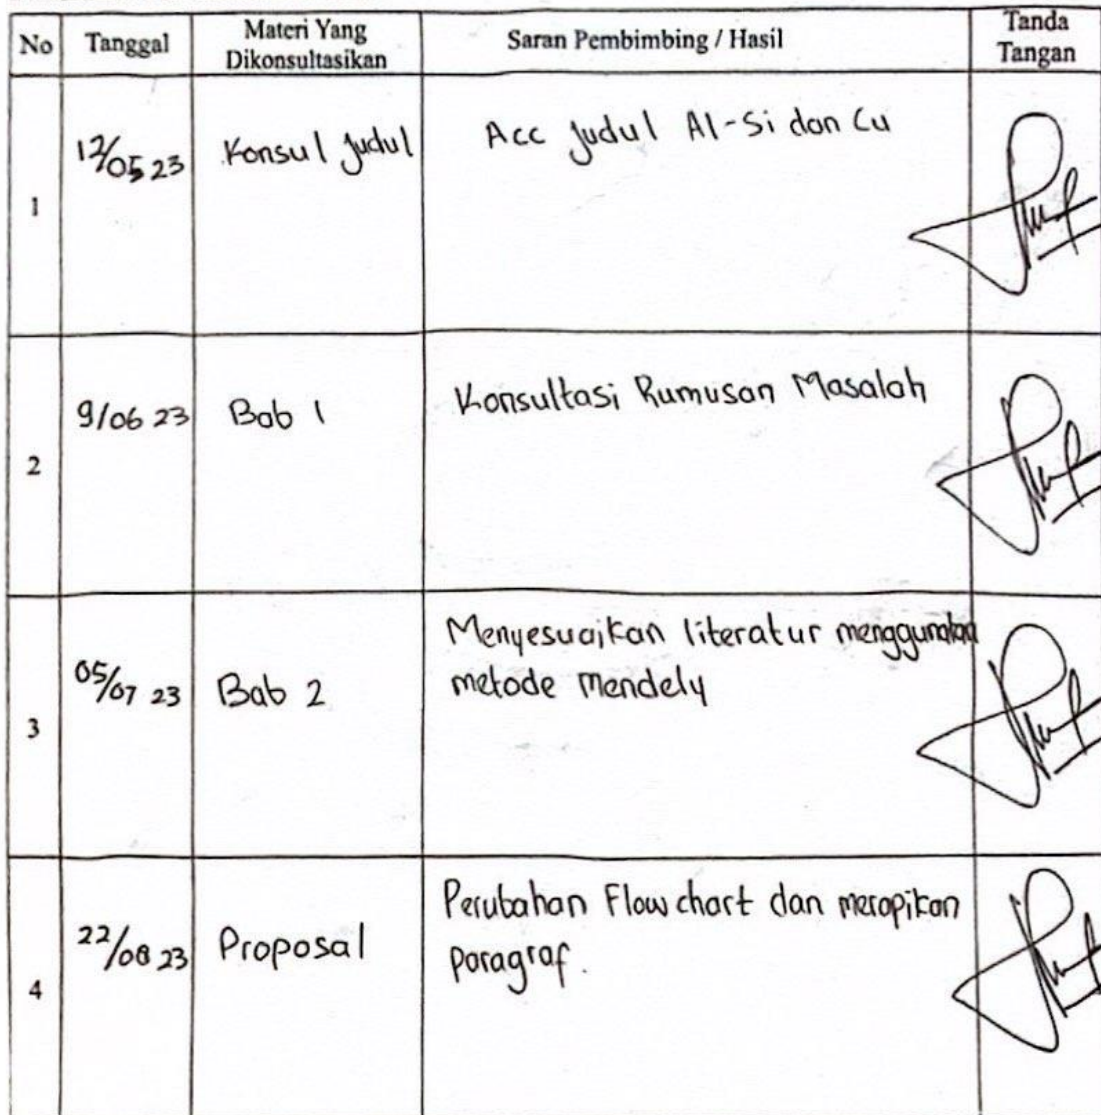 No Tanggal Materi Yang Dikonsultasikan Saran Pembimbing / Hasil Tanda Tangan
1 12/05 23 Konsul Judul Acc Judul Al-Si dan Cu
2 9/06 23 Bab 1 Konsultasi Rumusan Masalah
3 05/07 23 Bab 2 Menyesuaikan literatur menggunakan
metode Mendely
4 22/08 23 Proposal Perubahan Flowchart dan merapikan
paragraf.